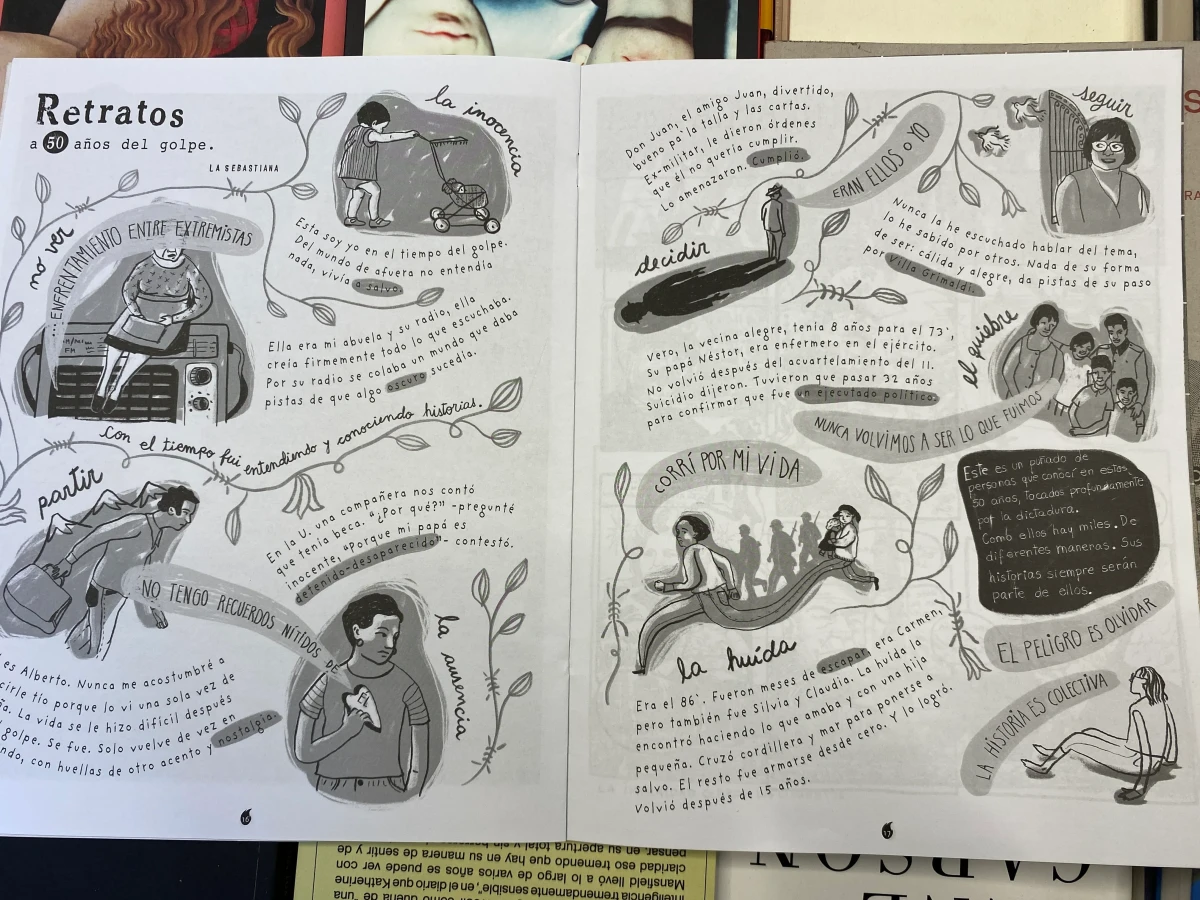 Retratos
a 50 años del golpe.
LA SEBASTIANA
la inocencia
Esta soy yo en el tiempo del golpe.
Del mundo de afuera no entendía
nada, vivía a salvo.
no ver
...ENFRENTAMIENTO ENTRE EXTREMISTAS
Ella era mi abuela y su radio, ella
creía firmemente todo lo que escuchaba.
Por su radio se colaba un mundo que daba
pistas de que algo oscuro sucedía.
Con el tiempo fui entendiendo y conociendo historias.
partir
es Alberto. Nunca me acostumbré a
cirle tío porque lo vi una sola vez de
ña. La vida se le hizo difícil después
golpe. Se fue. Solo vuelve de vez en
ndo, con huellas de otro acento y nostalgia.
En la U. una compañera nos contó
que tenía beca. "¿Por qué?" -pregunté
inocente. "Porque mi papá es
detenido-desaparecido"- contestó.
NO TENGO RECUERDOS NÍTIDOS DE
la ausencia
16
Don Juan, el amigo Juan, divertido,
bueno pa' la talla y las cartas.
Ex-militar, le dieron órdenes
que él no quería cumplir.
Lo amenazaron. Cumplió.
ERAN ELLOS o YO
decidir
seguir
Nunca la he escuchado hablar del tema,
lo he sabido por otros. Nada de su forma
de ser: cálida y alegre, da pistas de su paso
por Villa Grimaldi.
Vero, la vecina alegre, tenía 8 años para el 73',
Su papá Néstor, era enfermero en el ejército.
No volvió después del acuartelamiento del 11.
Suicidio dijeron. Tuvieron que pasar 32 años
para confirmar que fue un ejecutado político.
el quiebre
NUNCA VOLVIMOS A SER LO QUE FUIMOS
CORRÍ POR MI VIDA
la huída
Era el 86'. Fueron meses de escapar, era Carmen,
pero también fue Silvia y Claudia. La huída la
encontró haciendo lo que amaba y con una hija
pequeña. Cruzó cordillera y mar para ponerse a
salvo. El resto fue armarse desde cero. Y lo logró.
Volvió después de 15 años.
Este es un puñado de
personas que conocí en estos
50 años, tocados profundamente
por la dictadura.
Como ellos hay miles. De
diferentes maneras. Sus
historias siempre serán
parte de ellos.
EL PELIGRO ES OLVIDAR
LA HISTORIA ES COLECTIVA
17
pensar, en su apertura total y sin
claridad eso tremendo que hay en su manera de sentir y
Mansfield llevó a lo largo de varios años se puede ver con
inteligencia tremendamente sensible", en el diario que Katherine
CARSON